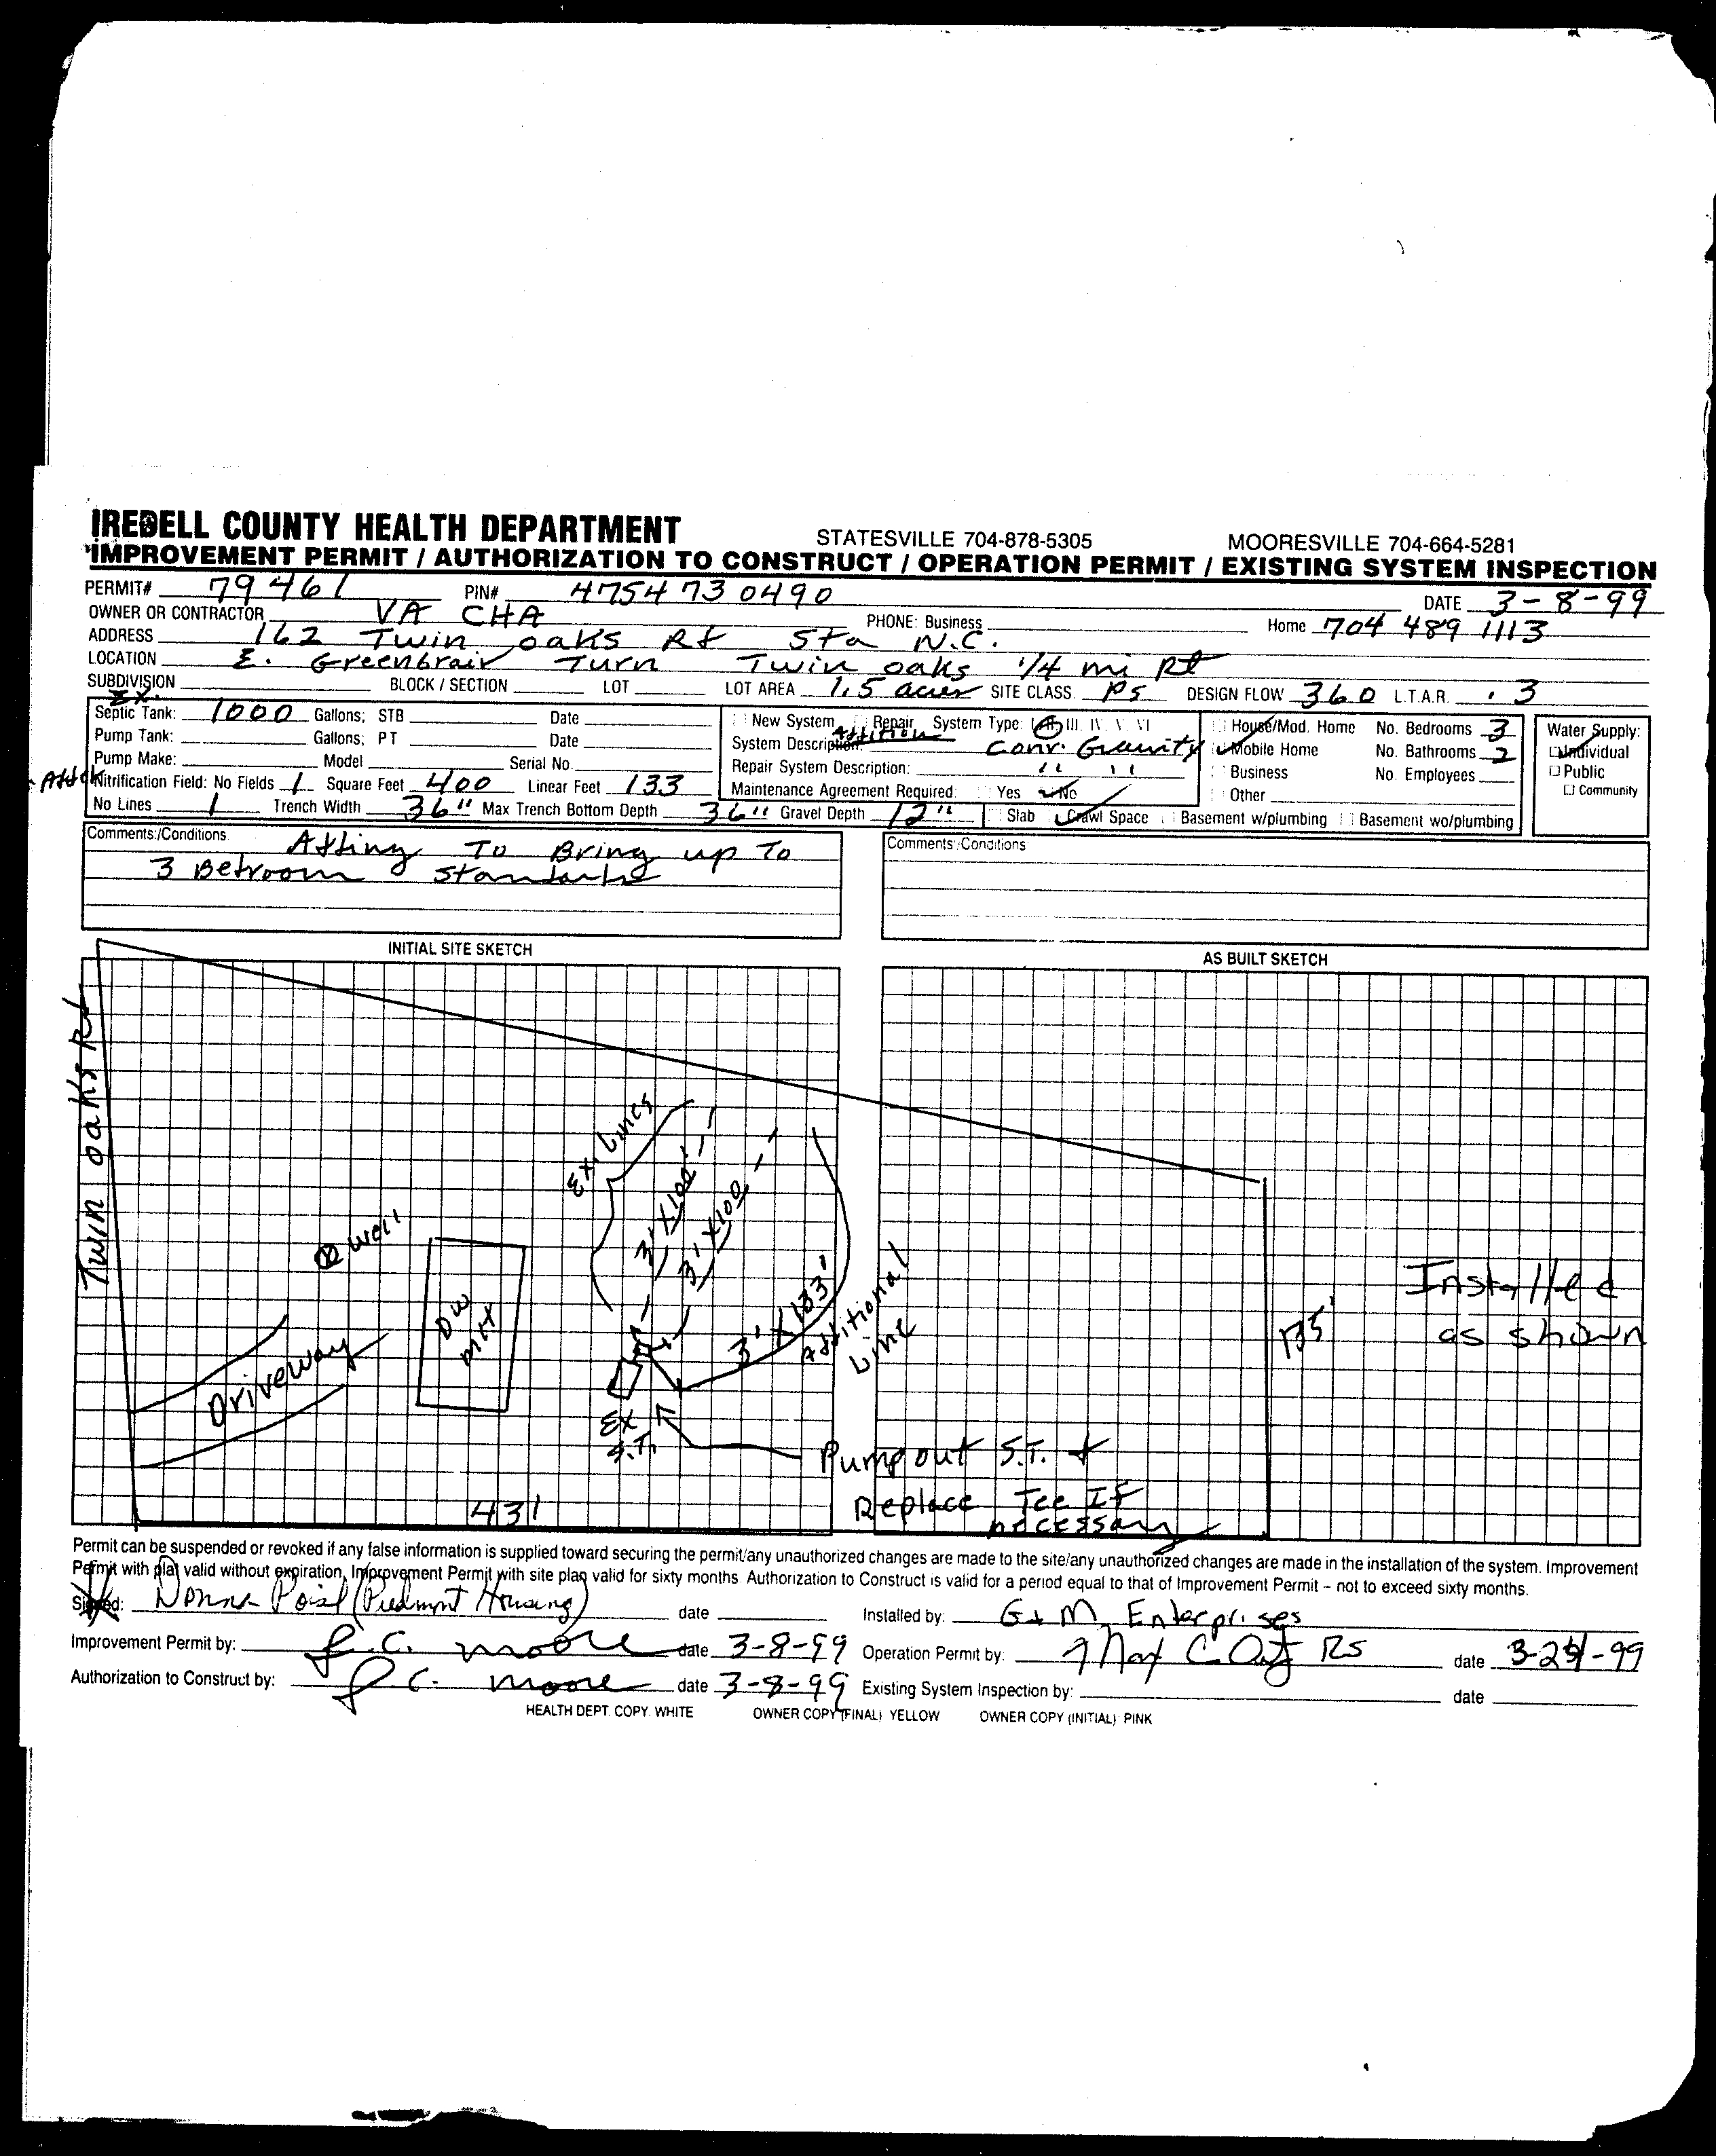 IREDELL COUNTY HEALTH DEPARTMENT STATESVILLE 704-878-5305 MOORESVILLE 704-664-5281
IMPROVEMENT PERMIT / AUTHORIZATION TO CONSTRUCT / OPERATION PERMIT / EXISTING SYSTEM INSPECTION
PERMIT# 79461 PIN# 4754 73 0490 DATE 3-8-99
OWNER OR CONTRACTOR VA CHA PHONE: Business Home 704 489 1113
ADDRESS 162 Twin oaks Rd Sta N.C.
LOCATION E. Greenbrair Turn Twin oaks 1/4 mi Rt
SUBDIVISION BLOCK / SECTION LOT LOT AREA 1.5 acres SITE CLASS. PS DESIGN FLOW 360 L.T.A.R. .3
Ex.
Septic Tank: 1000 Gallons; STB Date New System Repair System Type: I II III. IV. V. VI House/Mod. Home No. Bedrooms 3 Water Supply:
Pump Tank: Gallons; PT Date System Description: Addition Conv. Gravity Mobile Home No. Bathrooms 2 Individual
Pump Make: Model Serial No. Repair System Description: " " Business No. Employees Public
Nitrification Field: No Fields 1 Square Feet 400 Linear Feet 133 Maintenance Agreement Required: Yes No Other Community
No Lines 1 Trench Width 36" Max Trench Bottom Depth 36" Gravel Depth 12" Slab Crawl Space Basement w/plumbing Basement wo/plumbing
Comments:/Conditions Adding To Bring up To
3 Bedroom Standards
Comments:/Conditions
INITIAL SITE SKETCH
AS BUILT SKETCH
Twin oaks Rd
Ex. Lines
3' X 100'
3' X 100'
Well
DW
MH
3' X 133'
Additional
Line
Driveway
Ex
S.T.
Installed
as shown
175'
Pump out S.T. &
Replace Tee If
necessary
431
Permit can be suspended or revoked if any false information is supplied toward securing the permit/any unauthorized changes are made to the site/any unauthorized changes are made in the installation of the system. Improvement
Permit with plat valid without expiration, Improvement Permit with site plan valid for sixty months. Authorization to Construct is valid for a period equal to that of Improvement Permit – not to exceed sixty months.
Signed: Donna (Piedmont Housing) date Installed by: G & M Enterprises
Improvement Permit by: J.C. Moore date 3-8-99 Operation Permit by: RS date
Authorization to Construct by: J.C. Moore date 3-8-99 Existing System Inspection by: date
HEALTH DEPT. COPY. WHITE OWNER COPY (FINAL) YELLOW OWNER COPY (INITIAL) PINK